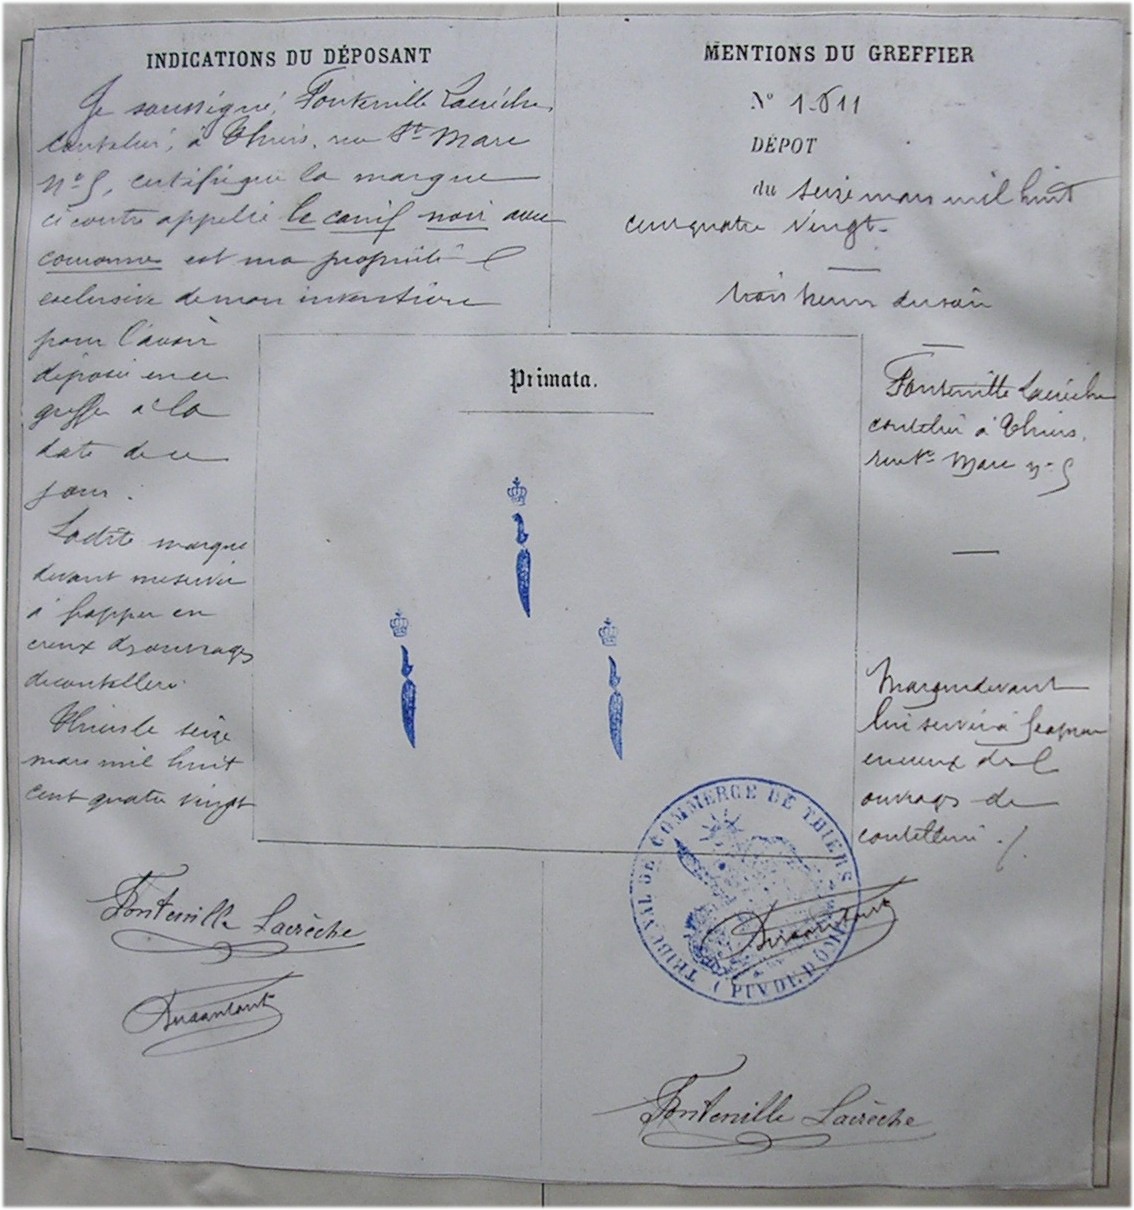 INDICATIONS DU DÉPOSANT
Je soussigné, Fontenille Lacrèche,
coutelier, à Thiers, rue St Marc
n° 5, certifie que la marque
ci contre appelée le canif noir avec
couronne est ma propriété
exclusive de mon invention
pour l'avoir
déposée en ce
greffe à la
date de ce
jour.
Ladite marque
devant me servir
à frapper en
creux des ouvrages
de coutellerie.
Thiers le seize
mars mil huit
cent quatre vingt
Fontenille Lacrèche
MENTIONS DU GREFFIER
N° 1.511
DÉPOT
du seize mars mil huit
cent quatre vingt.
trois heures du soir
Fontenille Lacrèche
coutelier à Thiers,
rue St Marc n° 5
Marque devant
lui servir à frapper
en creux des
ouvrages de
coutellerie ./.
Primata.
TRIBUNAL DE COMMERCE DE THIERS
(PUY DE DÔME)
Fontenille Lacrèche